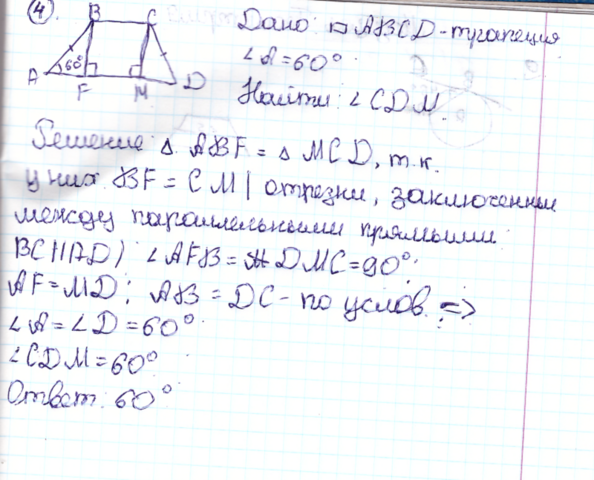 4.
B C
A 60° F M D
Дано: □ ABCD - трапеция
∠A = 60°
Найти: ∠CDM.
Решение Δ ABF = Δ MCD, т.к.
у них BF = CM (отрезки, заключенные
между параллельными прямыми
BC||AD) ∠AFB = ∠DMC = 90°;
AF = MD; AB = DC - по услов. =>
∠A = ∠D = 60°
∠CDM = 60°
Ответ: 60°